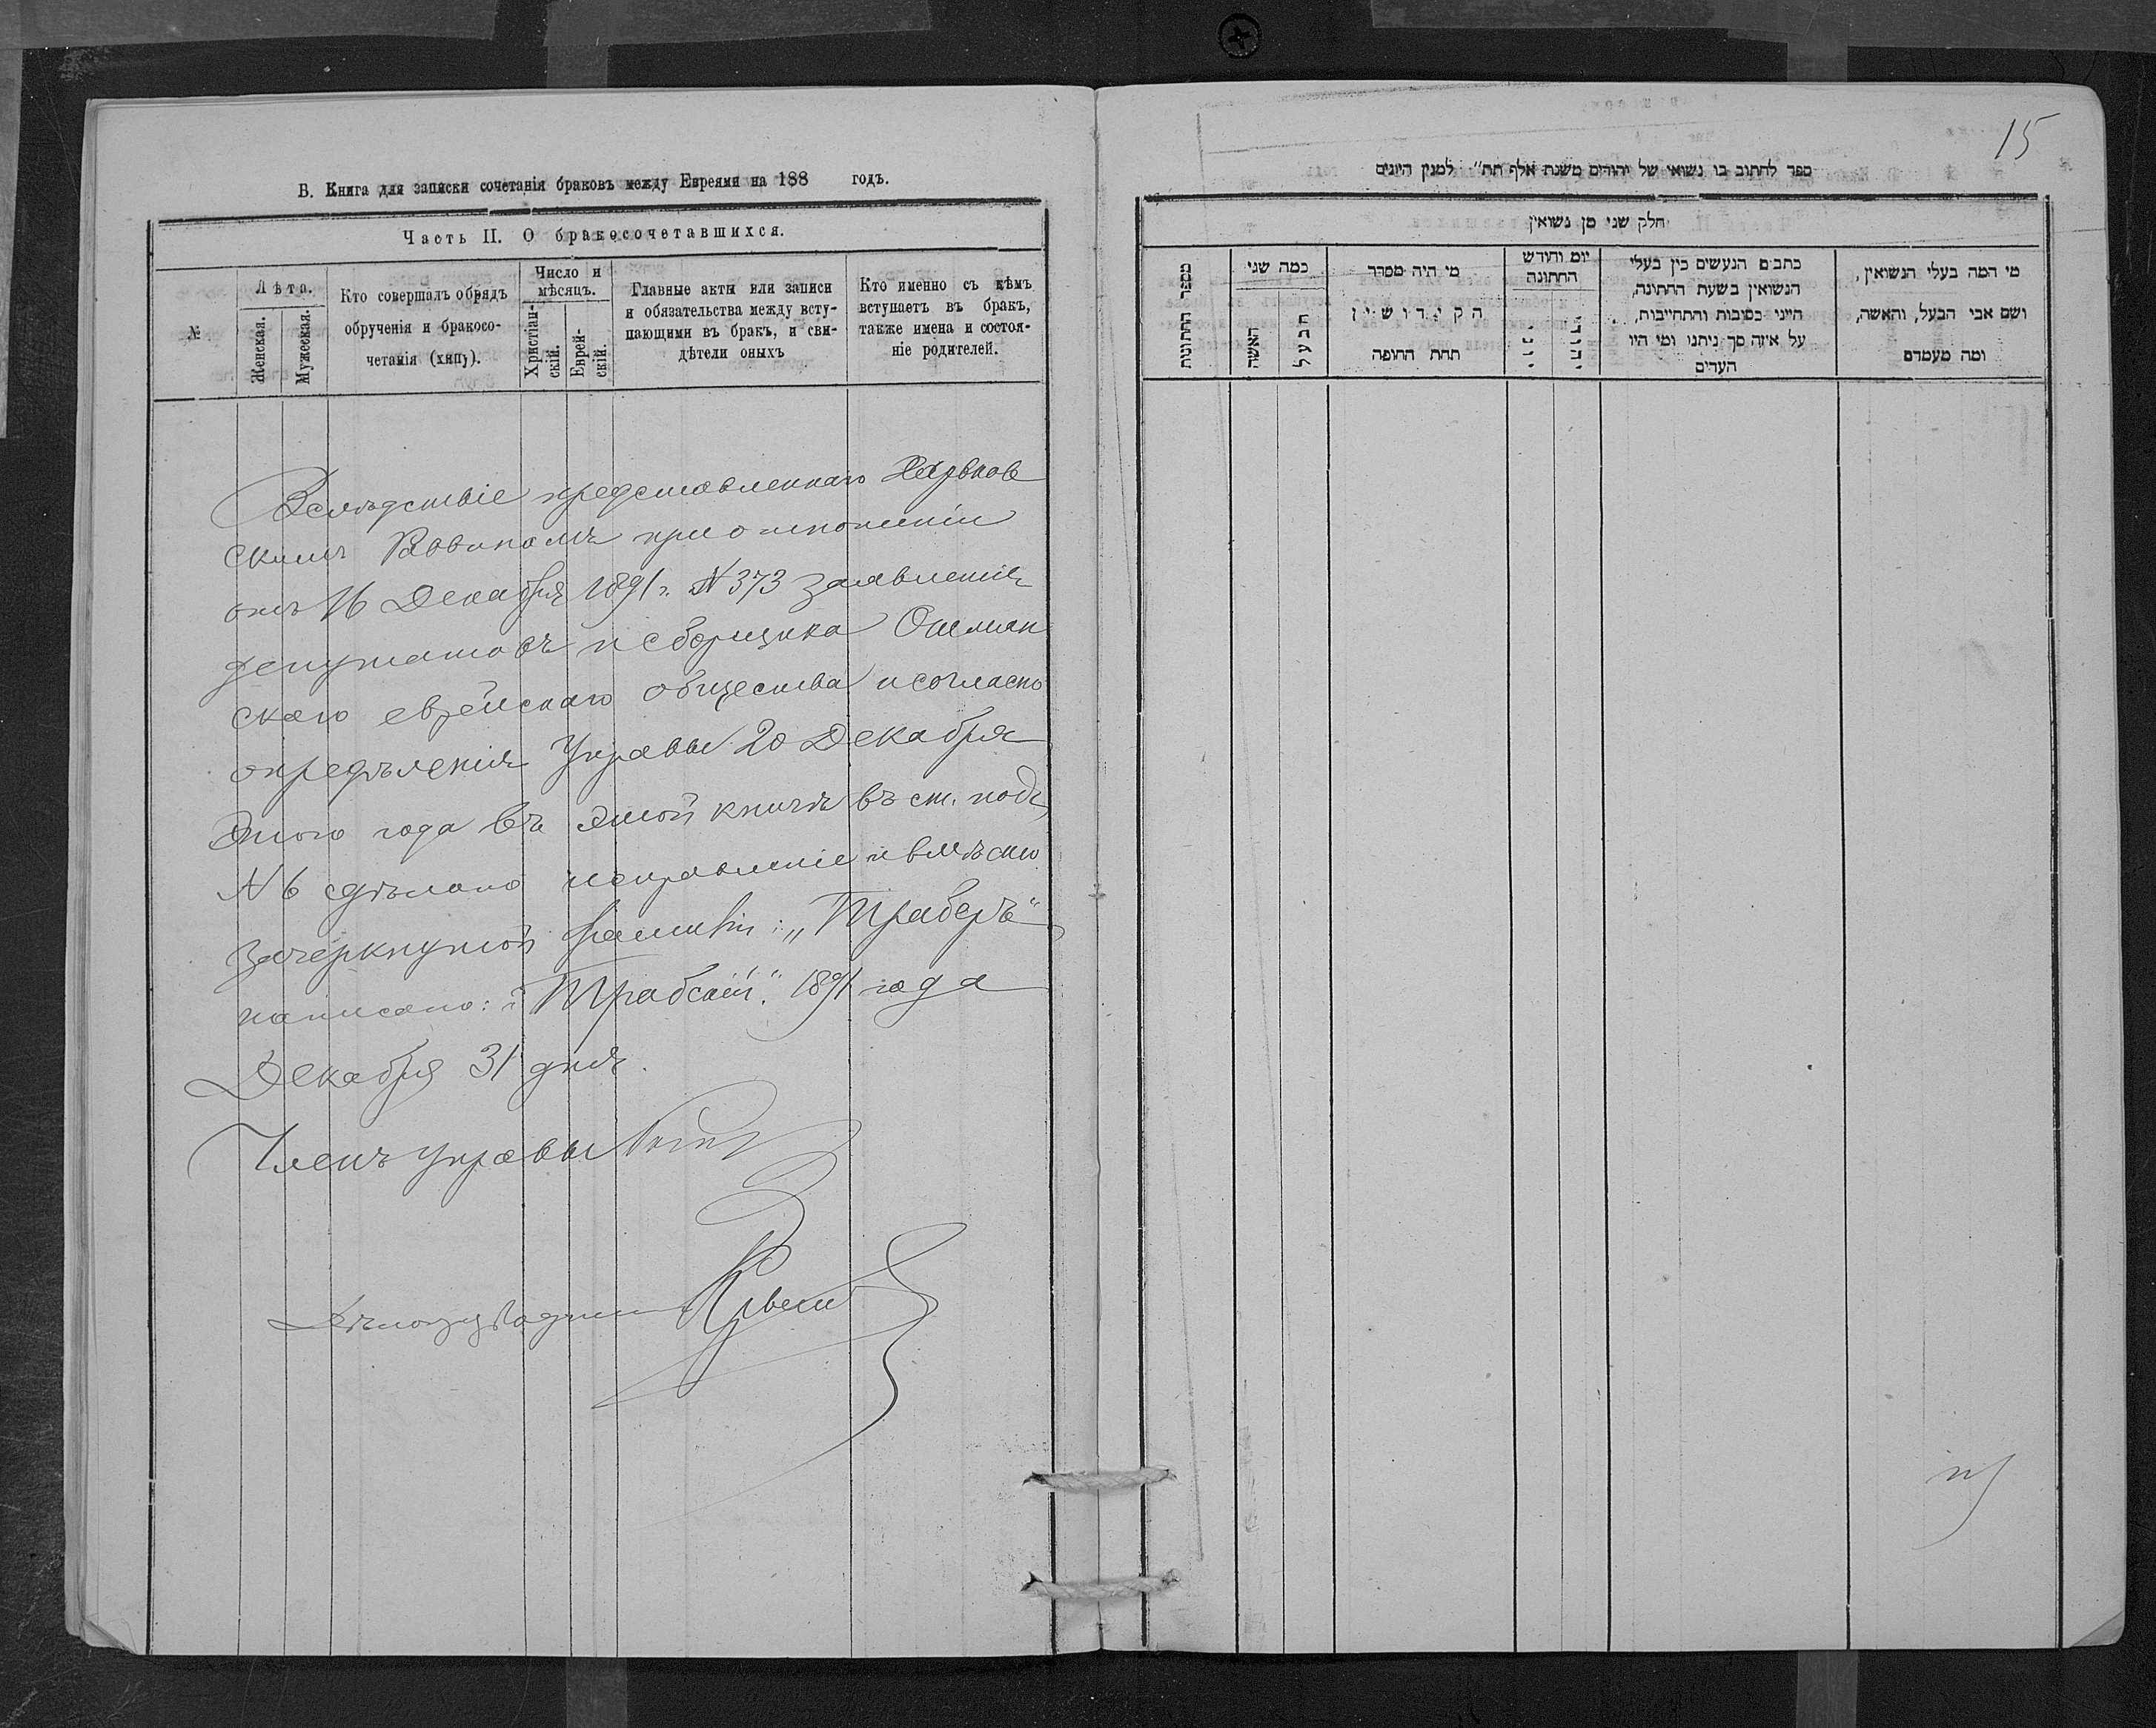 В. Книга для записки сочетанія браковъ между Евреями на 188 годъ.
Часть II. О бракосочетавшихся.
№
Лѣта.
Женская.
Мужеская.
Кто совершалъ обрядъ
обрученія и бракосо-
четанія (хипу).
Число и
мѣсяцъ.
Христіан-
скій.
Еврей-
скій.
Главные акты или записи
и обязательства между всту-
пающими въ бракъ, и сви-
дѣтели оныхъ
Кто именно съ кѣмъ
вступаетъ въ бракъ,
также имена и состоя-
ніе родителей.
Вслѣдствіе представленнаго Харьков
скимъ Раввиномъ при отношеніи
отъ 16 Декабря 1891 г. № 373 заявленія
депутатовъ и сборщика Ошмян
скаго еврейскаго общества и согласно
опредѣленія Управы 20 Декабря
этого года въ этой книгѣ въ ст. подъ
№ 6 сдѣлано исправленіе и вмѣсто
зачеркнутой фамиліи: „Траберъ“
написано: „Трабскій“. 1891 года
Декабря 31 дня.
Членъ Управы
15
ספר לחתוב בו נשואי של יהודים משנת אלף תת״ למנין היונים
חלק שני מן נשואין
מספר החתונות
כמה שני
האשה
הבעל
מי היה מסדר
הקידושין
תחת החופה
יום וחודש
החתונה
כתבים הנעשים בין בעלי
הנשואין בשעת החתונה,
היינו כתובות והתחייבות,
על איזה סך ניתנו ומי היו
העדים
מי המה בעלי הנשואין,
ושם אבי הבעל, והאשה,
ומה מעמדם